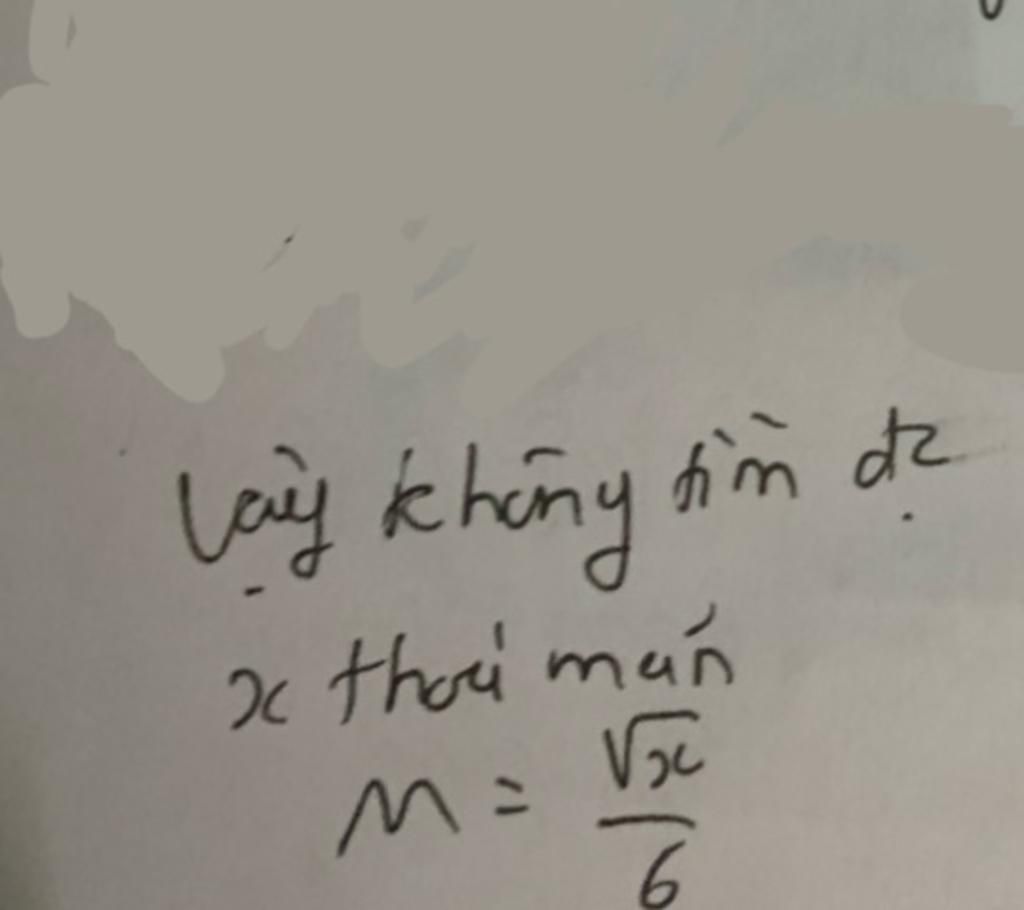 Vậy không tìm đc
x thoả mãn
M = \frac{\sqrt{x}}{6}